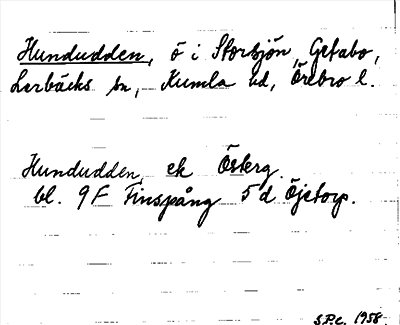 Hundudden, ö i Storsjön, Getabo,
Lerbäcks sn, Kumla hd, Örebro l.
Hundudden, ek Österg.
bl. 9F Finspång 5d Öjetorp.
S.P.c. 1958.